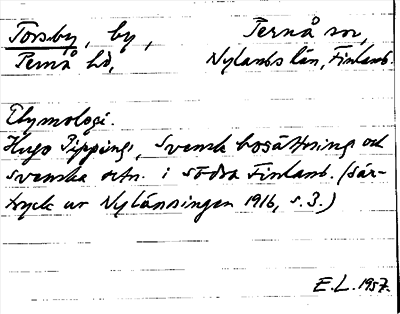 Torsby, by, Pernå sn,
Pernå hd, Nylands län, Finland.
Etymologi.
Hugo Pipping, Svensk bosättning och
svenska ortn. i södra Finland. (Sär-
tryck ur Nylänningen 1916, s. 3.)
E.L. 1957.